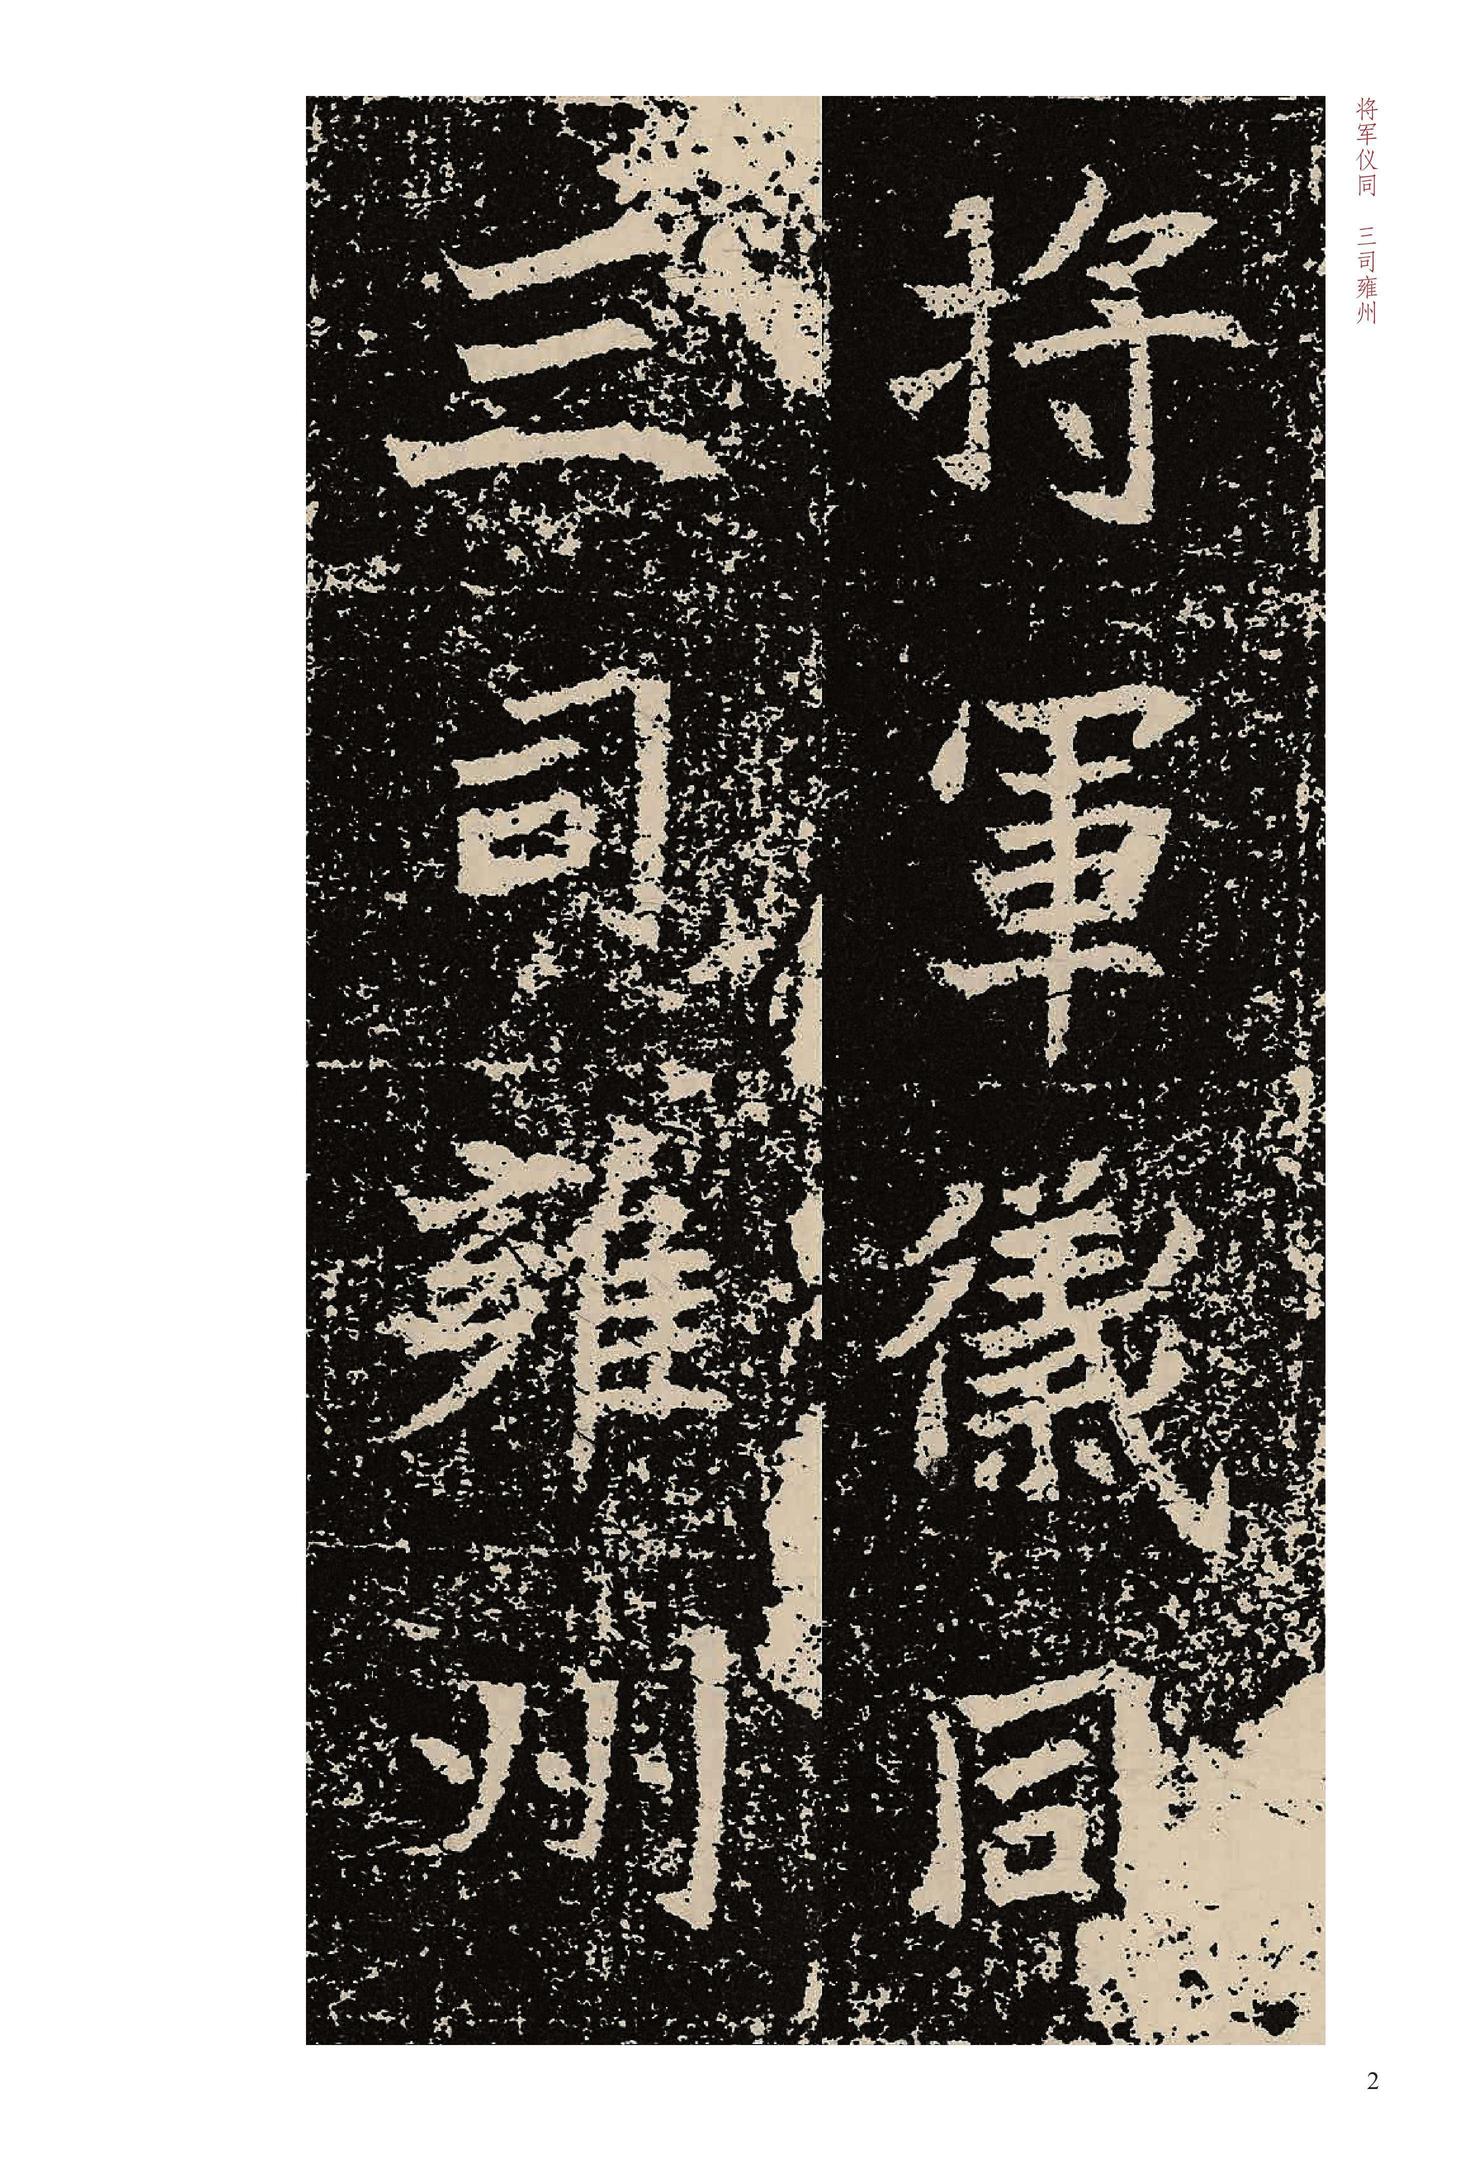 将军仪同 三司雍州
将軍儀同
三司雍州
2